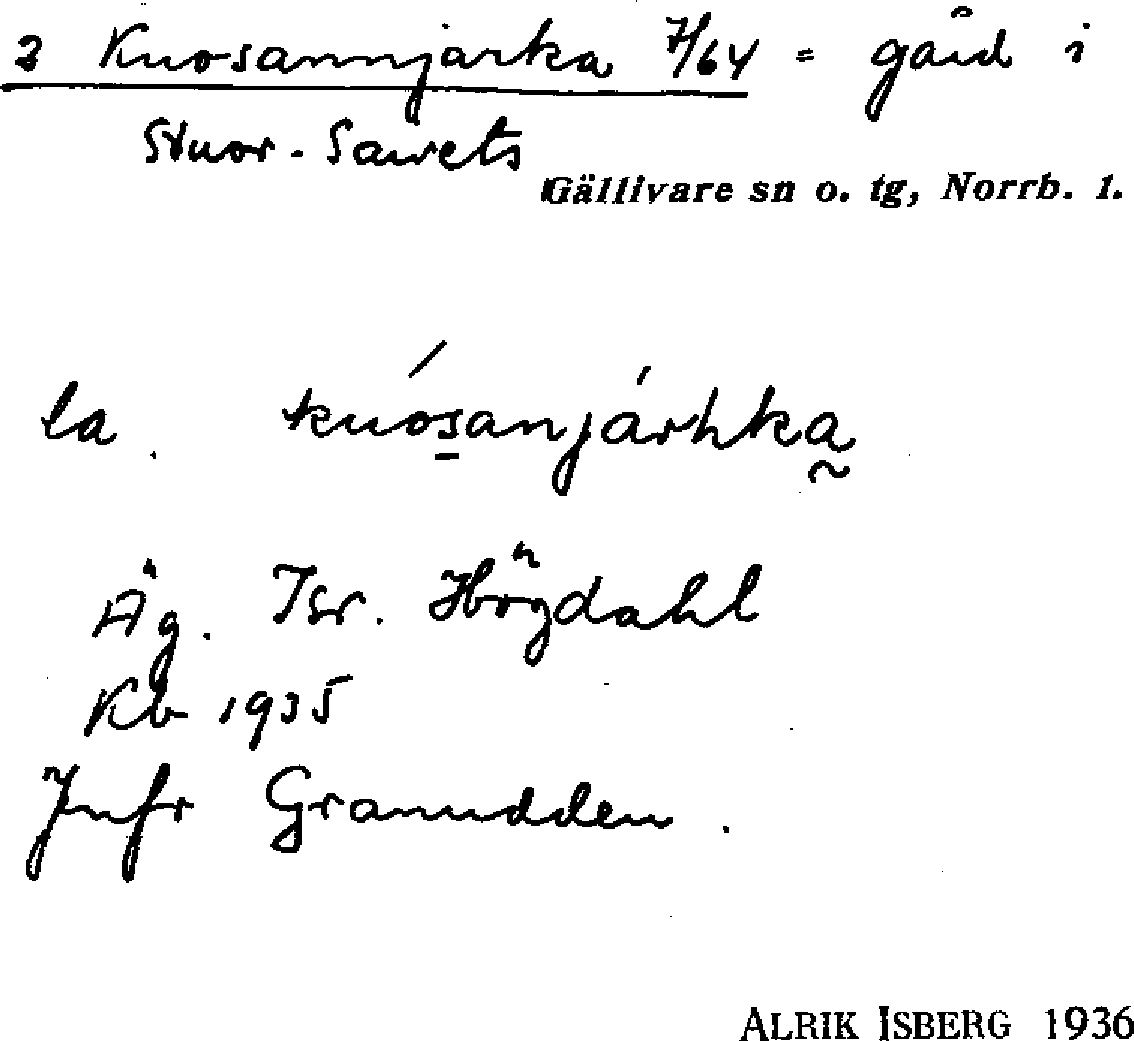 2 Kuosannjarka 7/64 = gård i
Stuor-Sawets
Gällivare sn o. tg, Norrb. l.
la. kuósa̱njárhka̰
Äg. Isr. Högdahl
Kb 1935
Jnfr Granudden.
ALRIK ISBERG 1936